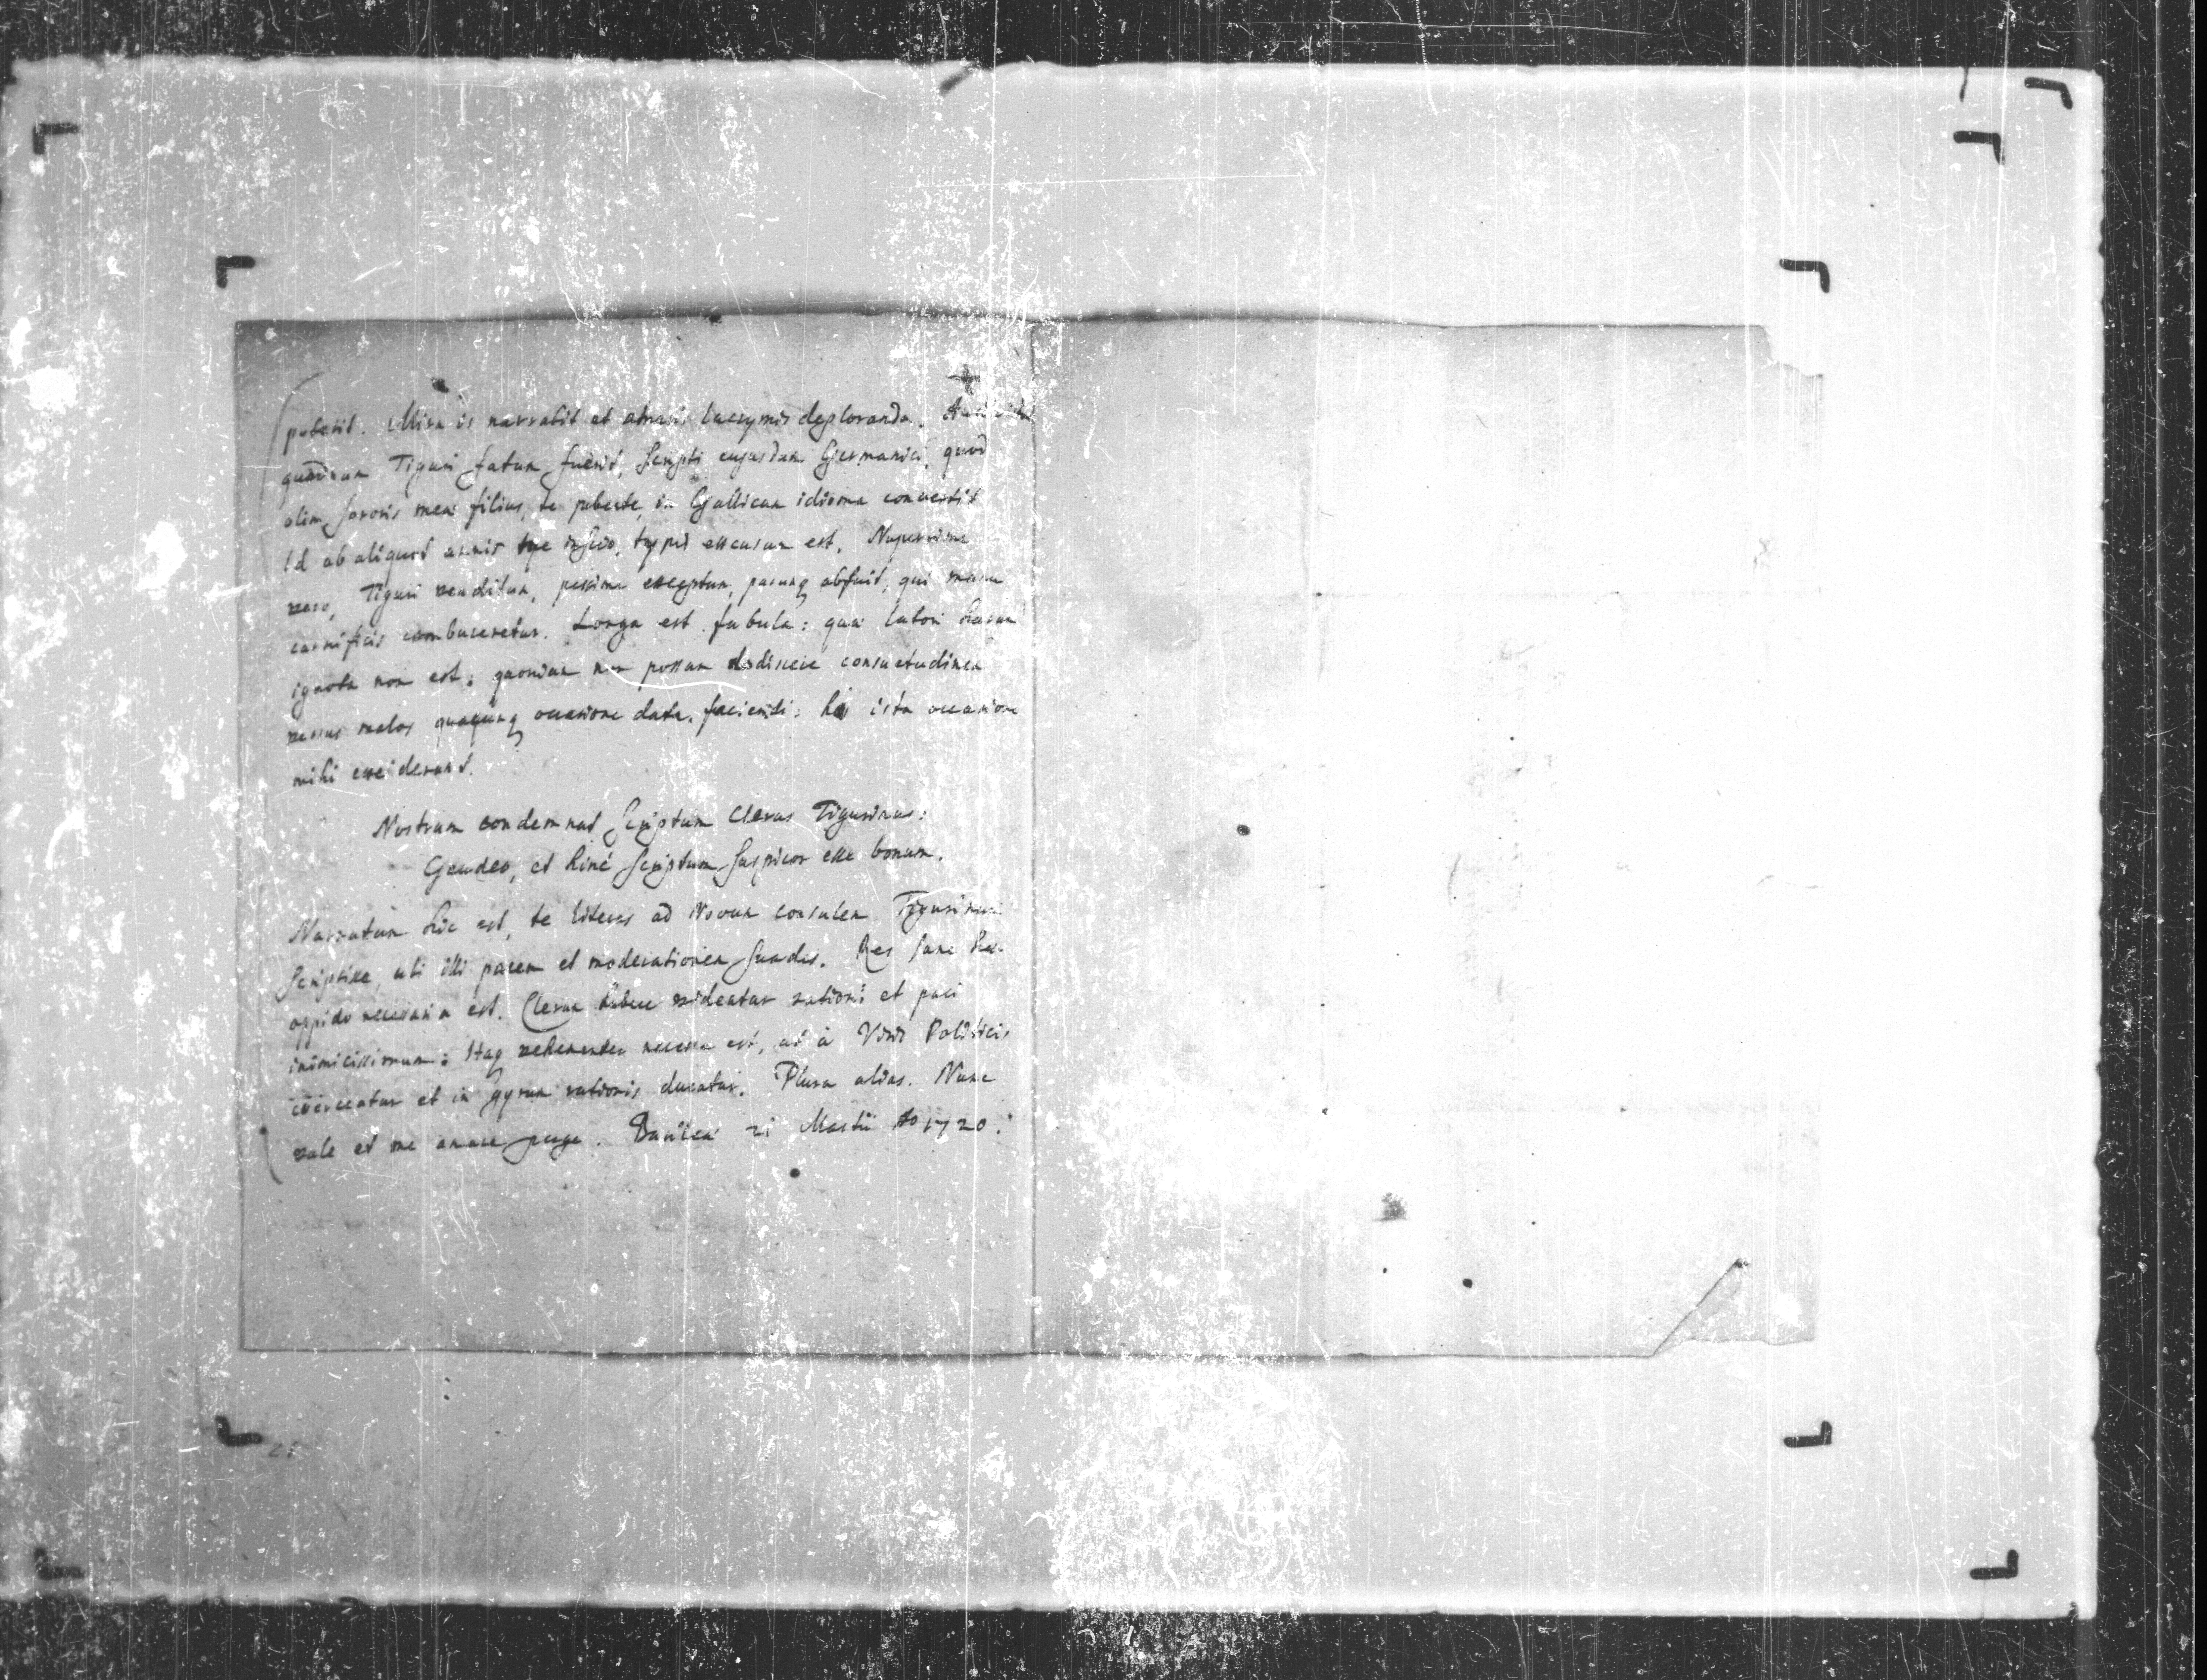 poterit. Mira is narrabit et lacrymis deploranda.
quodnam Tiguri fatum fuerit, Scripti cujusdam Germanici, quod
olim Sororis meæ filius, te jubente, in Gallicum idioma convertit
Id ab aliquot annis typis excusum est. Nuperrime
vero, Tiguri venditum, pessime exceptum, parumq abfuit, qui manu
carnificis combureretur. Longa est fabula: quæ latori harum
ignota non est: quoniam non possum dediscere consuetudinem
versus malos quacunq occasione data, faciendi: hi ista occasione
mihi exciderunt.
Nostrum condemnat Scriptum Clerus Tigurinus:
Gaudeo, et hinc Scriptum Suspicor esse bonum.
Narratum hic est, te literas ad Novum consulem Tigurinum
Scripsisse, uti illi pacem et moderationem Suades. Res Sane hæc
oppido necessaria est. Clerum habere videatur rationi et paci
inimicissimum: Itaq vehementer necesse est, ut à Viris Politicis
coerceatur et in gyrum rationis ducatur. Plura alias. Nunc
vale et me amare perge. Basileæ 21 Martii Ao 1720.